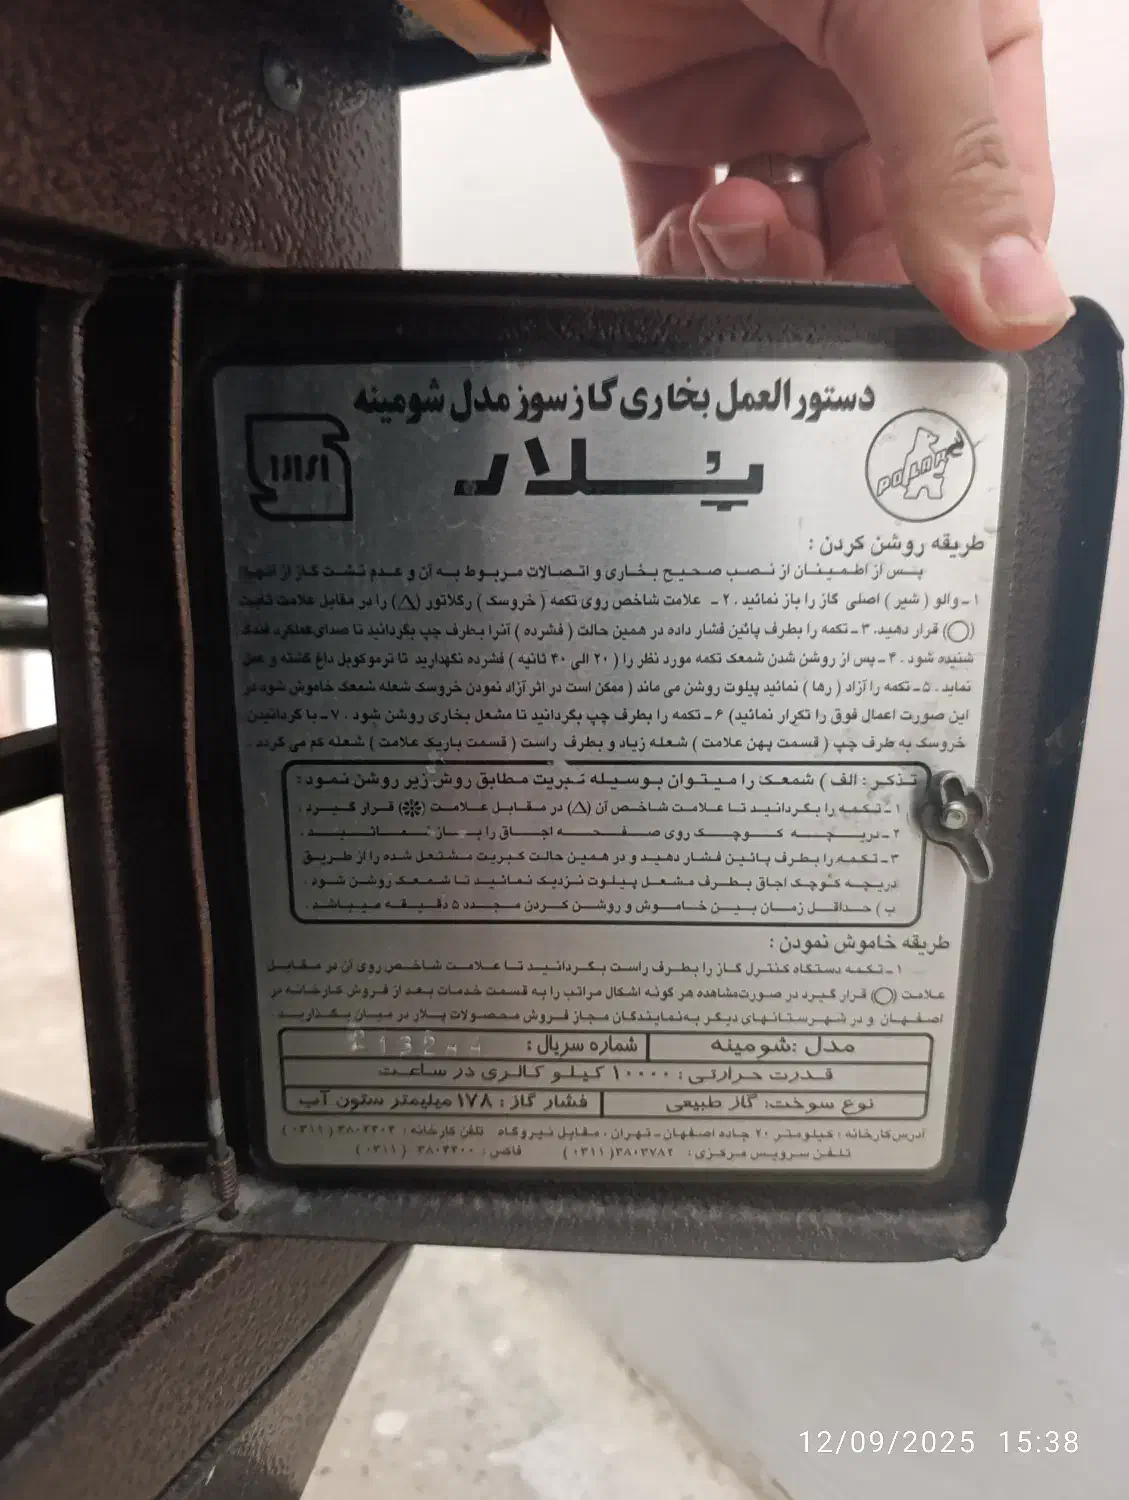 دستورالعمل بخاری گازسوز مدل شومینه
پلار
POLAR
طریقه روشن کردن :
پس از اطمینان از نصب صحیح بخاری و اتصالات مربوط به آن و عدم نشت گاز از آنها
۱ـ والو ( شیر ) اصلی گاز را باز نمائید . ۲ـ علامت شاخص روی تکمه ( خروسک ) رگلاتور (△) را در مقابل علامت ثابت
(○) قرار دهید. ۳ـ تکمه را بطرف پائین فشار داده در همین حالت ( فشرده ) آنرا بطرف چپ بگردانید تا صدای عملکرد فندک
شنیده شود . ۴ـ پس از روشن شدن شمعک تکمه مورد نظر را ( ۲۰ الی ۴۰ ثانیه ) فشرده نگهدارید تا ترموکوپل داغ گشته و عمل
نماید . ۵ـ تکمه را آزاد ( رها ) نمائید پیلوت روشن می ماند ( ممکن است در اثر آزاد نمودن خروسک شعله شمعک خاموش شود در
این صورت اعمال فوق را تکرار نمائید) ۶ـ تکمه را بطرف چپ بگردانید تا مشعل بخاری روشن شود . ۷ـ با گردانیدن
خروسک به طرف چپ ( قسمت پهن علامت ) شعله زیاد و بطرف راست ( قسمت باریک علامت ) شعله کم می گردد .
تذکر : الف ) شمعک را میتوان بوسیله کبریت مطابق روش زیر روشن نمود :
۱ـ تکمه را بگردانید تا علامت شاخص آن (△) در مقابل علامت (✽) قرار گیرد .
۲ـ دریچه کوچک روی صفحه اجاق را باز نمائید .
۳ـ تکمه را بطرف پائین فشار دهید و در همین حالت کبریت مشتعل شده را از طریق
دریچه کوچک اجاق بطرف مشعل پیلوت نزدیک نمائید تا شمعک روشن شود .
ب ) حداقل زمان بین خاموش و روشن کردن مجدد ۵ دقیقه میباشد .
طریقه خاموش نمودن :
۱ـ تکمه دستگاه کنترل گاز را بطرف راست بگردانید تا علامت شاخص روی آن در مقابل
علامت (○) قرار گیرد در صورت مشاهده هر گونه اشکال مراتب را به قسمت خدمات بعد از فروش کارخانه در
اصفهان و در شهرستانهای دیگر به نمایندگان مجاز فروش محصولات پلار در میان بگذارید.
مدل : شومینه شماره سریال :
قدرت حرارتی : ۱۰۰۰۰ کیلو کالری در ساعت
نوع سوخت: گاز طبیعی فشار گاز : ۱۷۸ میلیمتر ستون آب
آدرس کارخانه : کیلومتر ۲۰ جاده اصفهان ـ تهران ، مقابل نیروگاه تلفن کارخانه :
تلفن سرویس مرکزی : ۳۸۰۳۷۸۲ (۰۳۱۱) فاکس :
12/09/2025 15:38